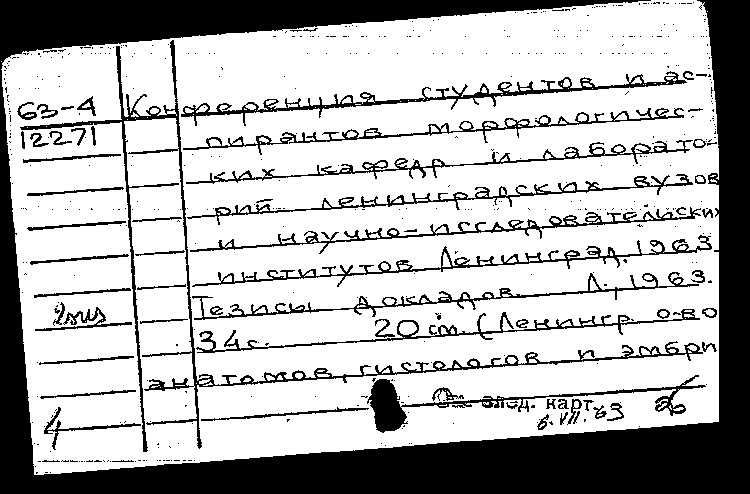 63-4 Конференция студентов и ас-
12271 пирантов морфологичес-
ких кафедр и лаборато-
рий ленинградских вузов
и научно-исследовательских
институтов Ленинград. 1963.
2 Тезисы докладов. Л., 1963.
34 с. 20 см. (Ленингр. о-во
анатомов, гистологов и эмбри
4 См. след. карт.
6.VII.63